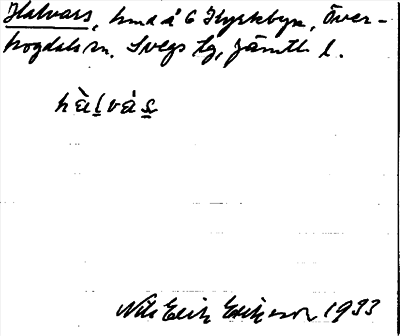 Halvars, hmd å 6 Kyrkbyn, Över-
hogdals sn. Svegs tg, Jämtl l.
hàlvás
Nils Erik Eriksson 1933